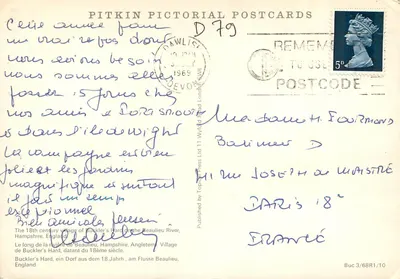 PITKIN PICTORIAL POSTCARDS
D 79
Cette année pour
un vrai repos dont
nous avions besoin
nous sommes allés
passer 15 jours chez
nos amis à
et dans l'île de wight
la campagne est bien
jolie et les jardins
magnifiques et surtout
il fait un temps
exceptionnel
Bien amicales pensées
DAWLISH
1969
DEVON
REMEMBER
TO USE
POSTCODE
5D
Madame H
Batiment D
41 rue JOSEPH de MAISTRE
PARIS 18e
FRANCE
The 18th century village of Buckler's Hard on the Beaulieu River,
Hampshire, England.
Le long de la rivière Beaulieu, Hampshire, Angleterre. Village de
Buckler's Hard, datant du 18ème siècle.
Buckler's Hard, ein Dorf aus dem 18. Jahrh., am Flusse Beaulieu,
England.
Published by
Buc 3/68R1/10